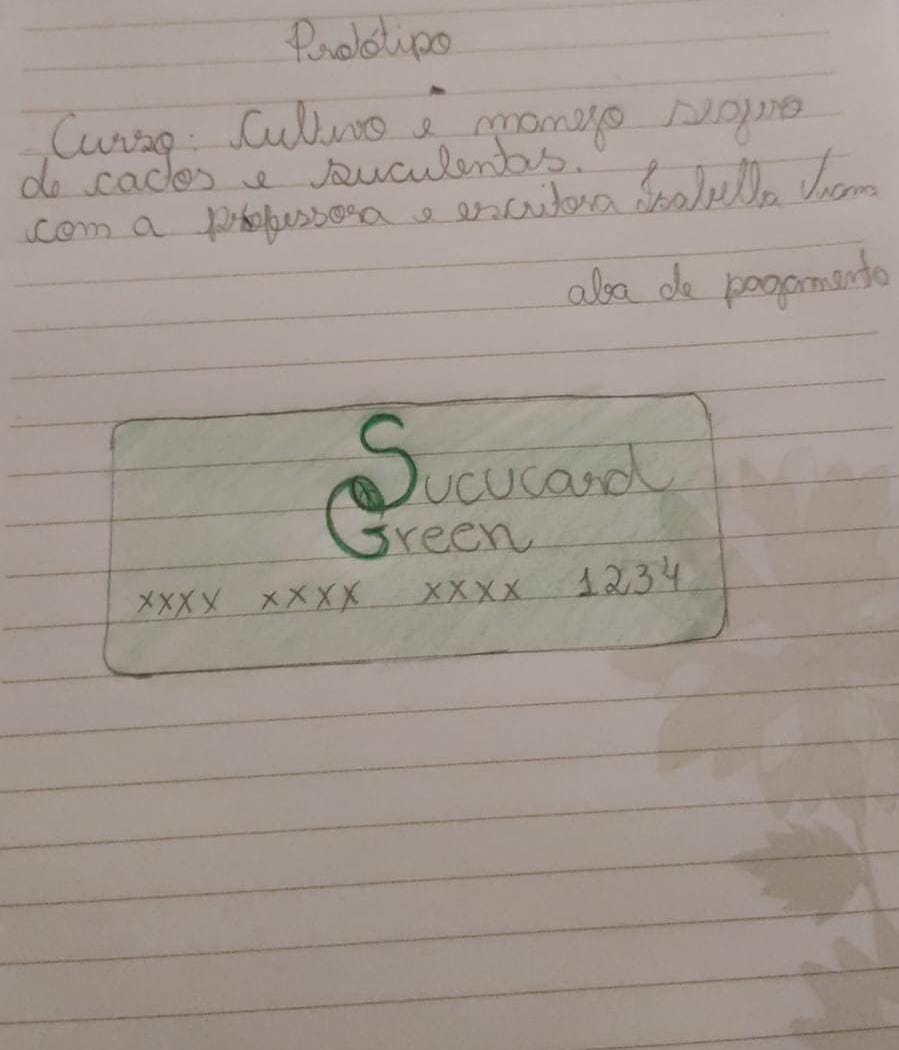 Protótipo
Curso: Cultivo e manejo seguro
de cactos e suculentas.
com a professora e escritora Isabella
aba de pagamento
Sucucard
Green
xxxx xxxx xxxx 1234